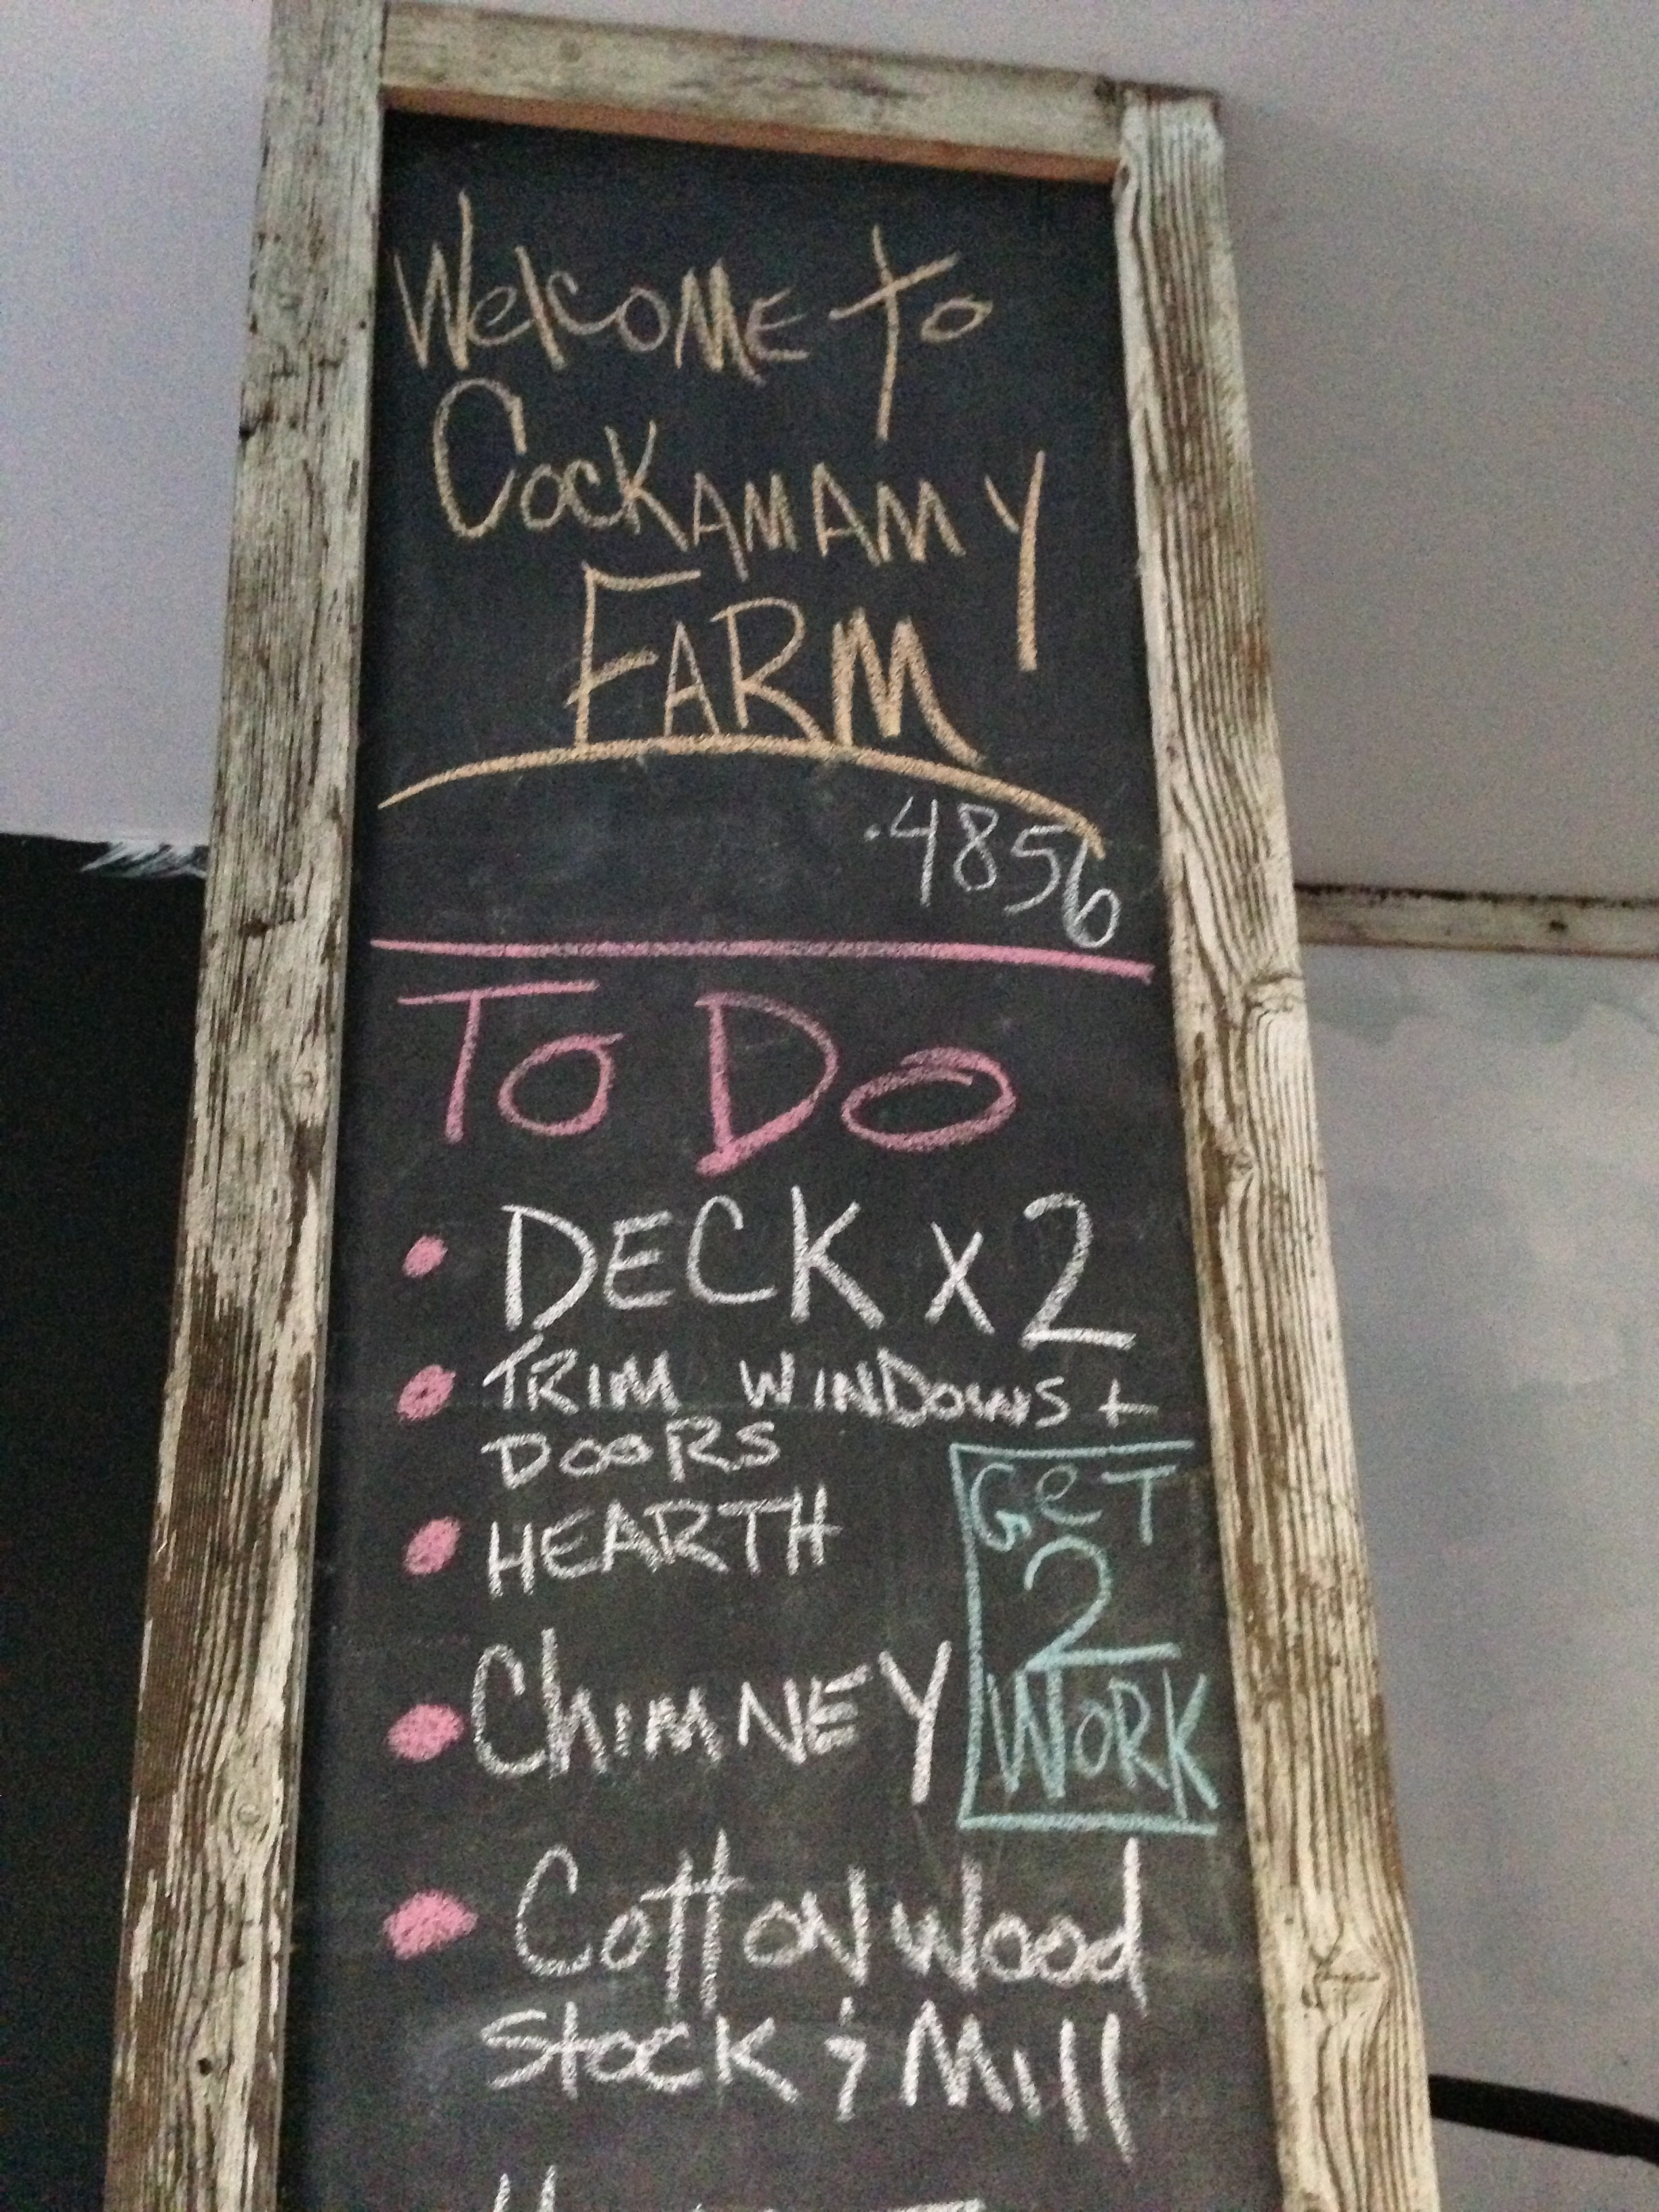 Welcome to
Cockamamy
Farm
.4856
To Do
• DECK x 2
• TRIM WINDOWS +
DOORS
• HEARTH
• ChimNEY
GeT
2
WORK
• Cottonwood
Stock & Mill